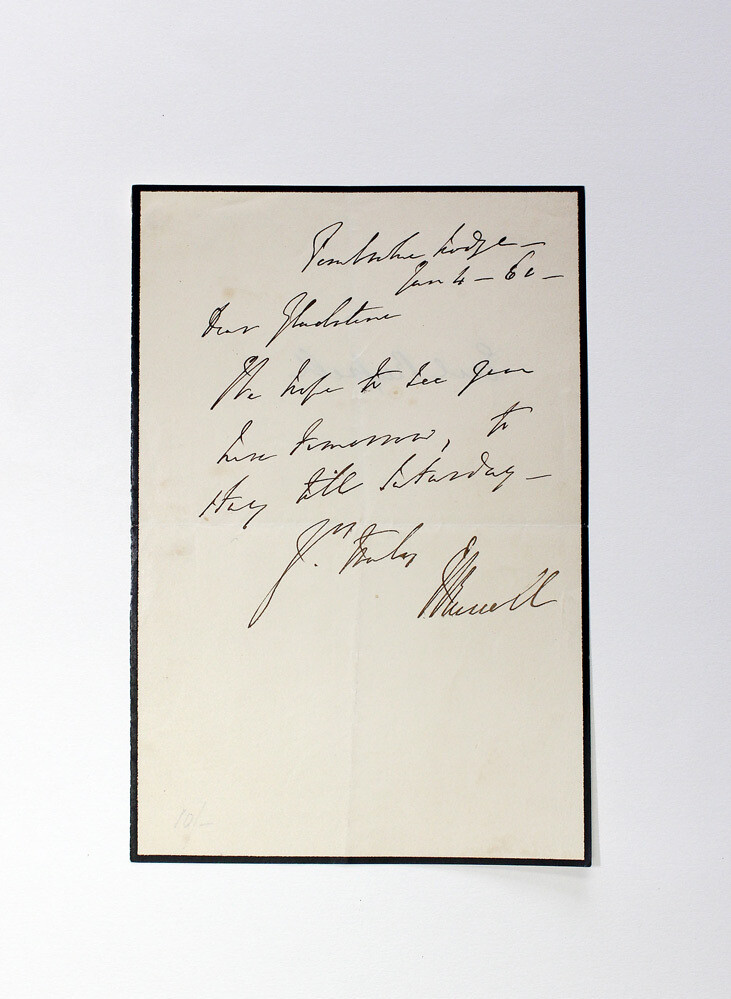 Pembroke Lodge —
Jan 4 — 60 —
Dear Gladstone
We hope to see you
here tomorrow, to
stay till Saturday —
Yrs. truly
J Russell
10/-